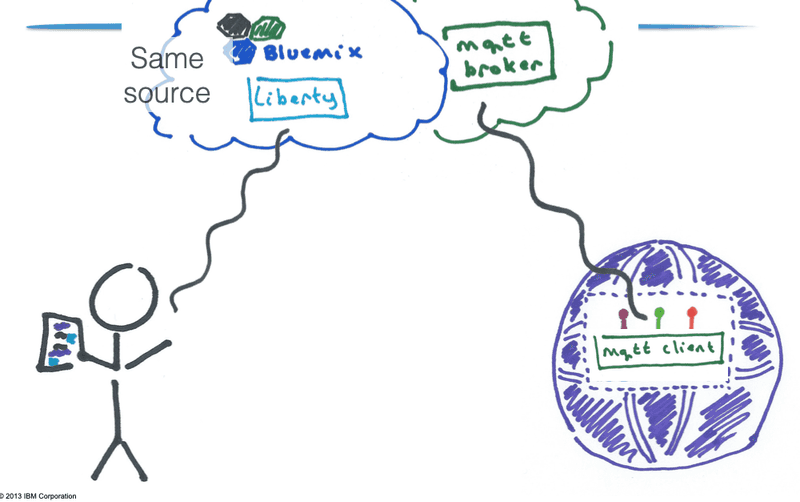 Same
source
Bluemix
Liberty
mqtt
broker
mqtt client
© 2013 IBM Corporation